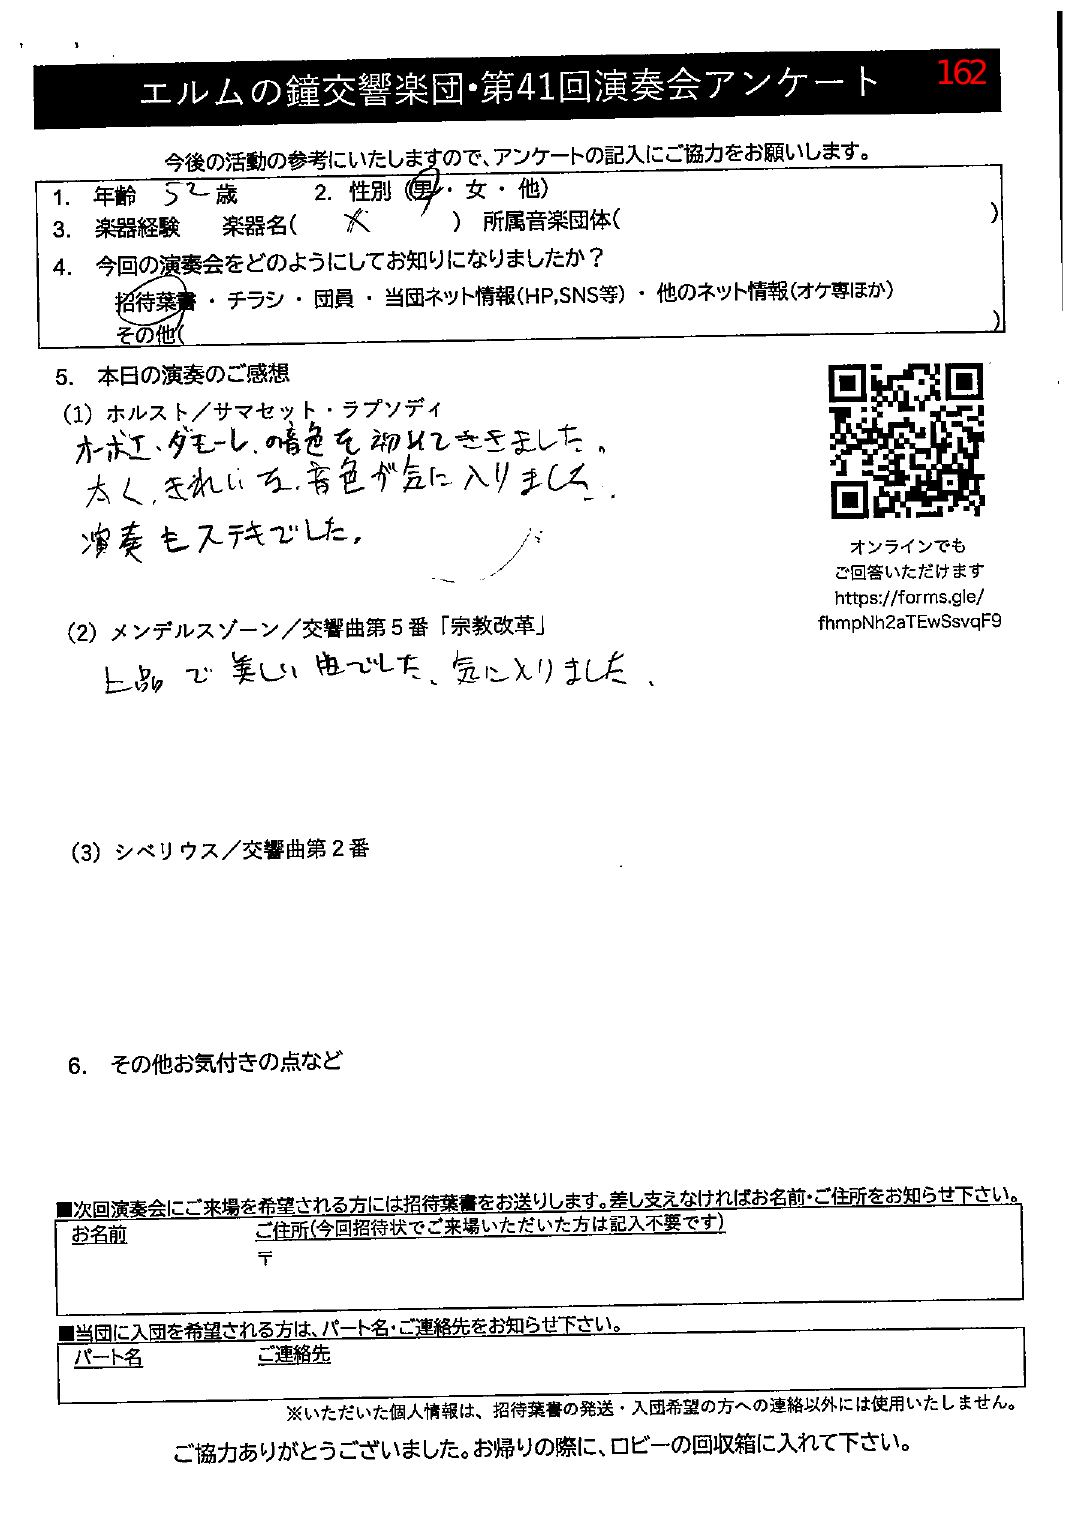 エルムの鐘交響楽団・第41回演奏会アンケート
162
今後の活動の参考にいたしますので、アンケートの記入にご協力をお願いします。
1. 年齢 52 歳 2. 性別 (男・女・他)
3. 楽器経験 楽器名( ) 所属音楽団体( )
4. 今回の演奏会をどのようにしてお知りになりましたか？
招待葉書 ・ チラシ ・ 団員 ・ 当団ネット情報(HP,SNS等) ・ 他のネット情報(オケ専ほか)
その他( )
5. 本日の演奏のご感想
(1) ホルスト／サマセット・ラプソディ
オーボエ・ダモーレ.の音色を初めてききました。
太く、きれいな、音色が気に入りました.
演奏もステキでした。
オンラインでも
ご回答いただけます
https://forms.gle/
fhmpNh2aTEwSsvqF9
(2) メンデルスゾーン／交響曲第５番「宗教改革」
上品で美しい曲でした、気に入りました、
(3) シベリウス／交響曲第２番
6. その他お気付きの点など
■次回演奏会にご来場を希望される方には招待葉書をお送りします。差し支えなければお名前・ご住所をお知らせ下さい。
お名前 ご住所(今回招待状でご来場いただいた方は記入不要です)
〒
■当団に入団を希望される方は、パート名・ご連絡先をお知らせ下さい。
パート名 ご連絡先
※いただいた個人情報は、招待葉書の発送・入団希望の方への連絡以外には使用いたしません。
ご協力ありがとうございました。お帰りの際に、ロビーの回収箱に入れて下さい。